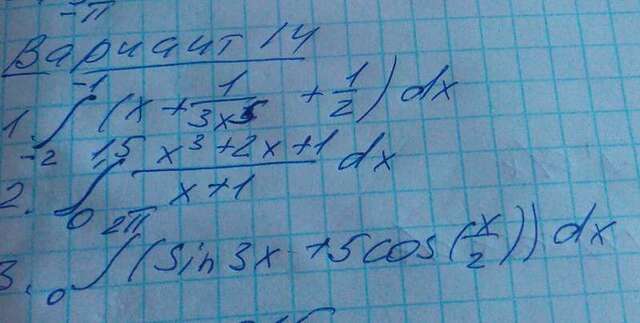 -π
Вариант 14
1. ∫_{-2}^{-1} (x + 1/(3x⁵) + 1/2) dx
2. ∫_0^{1,5} (x³+2x+1)/(x+1) dx
3. ∫_0^{2π} (sin3x + 5cos(x/2)) dx